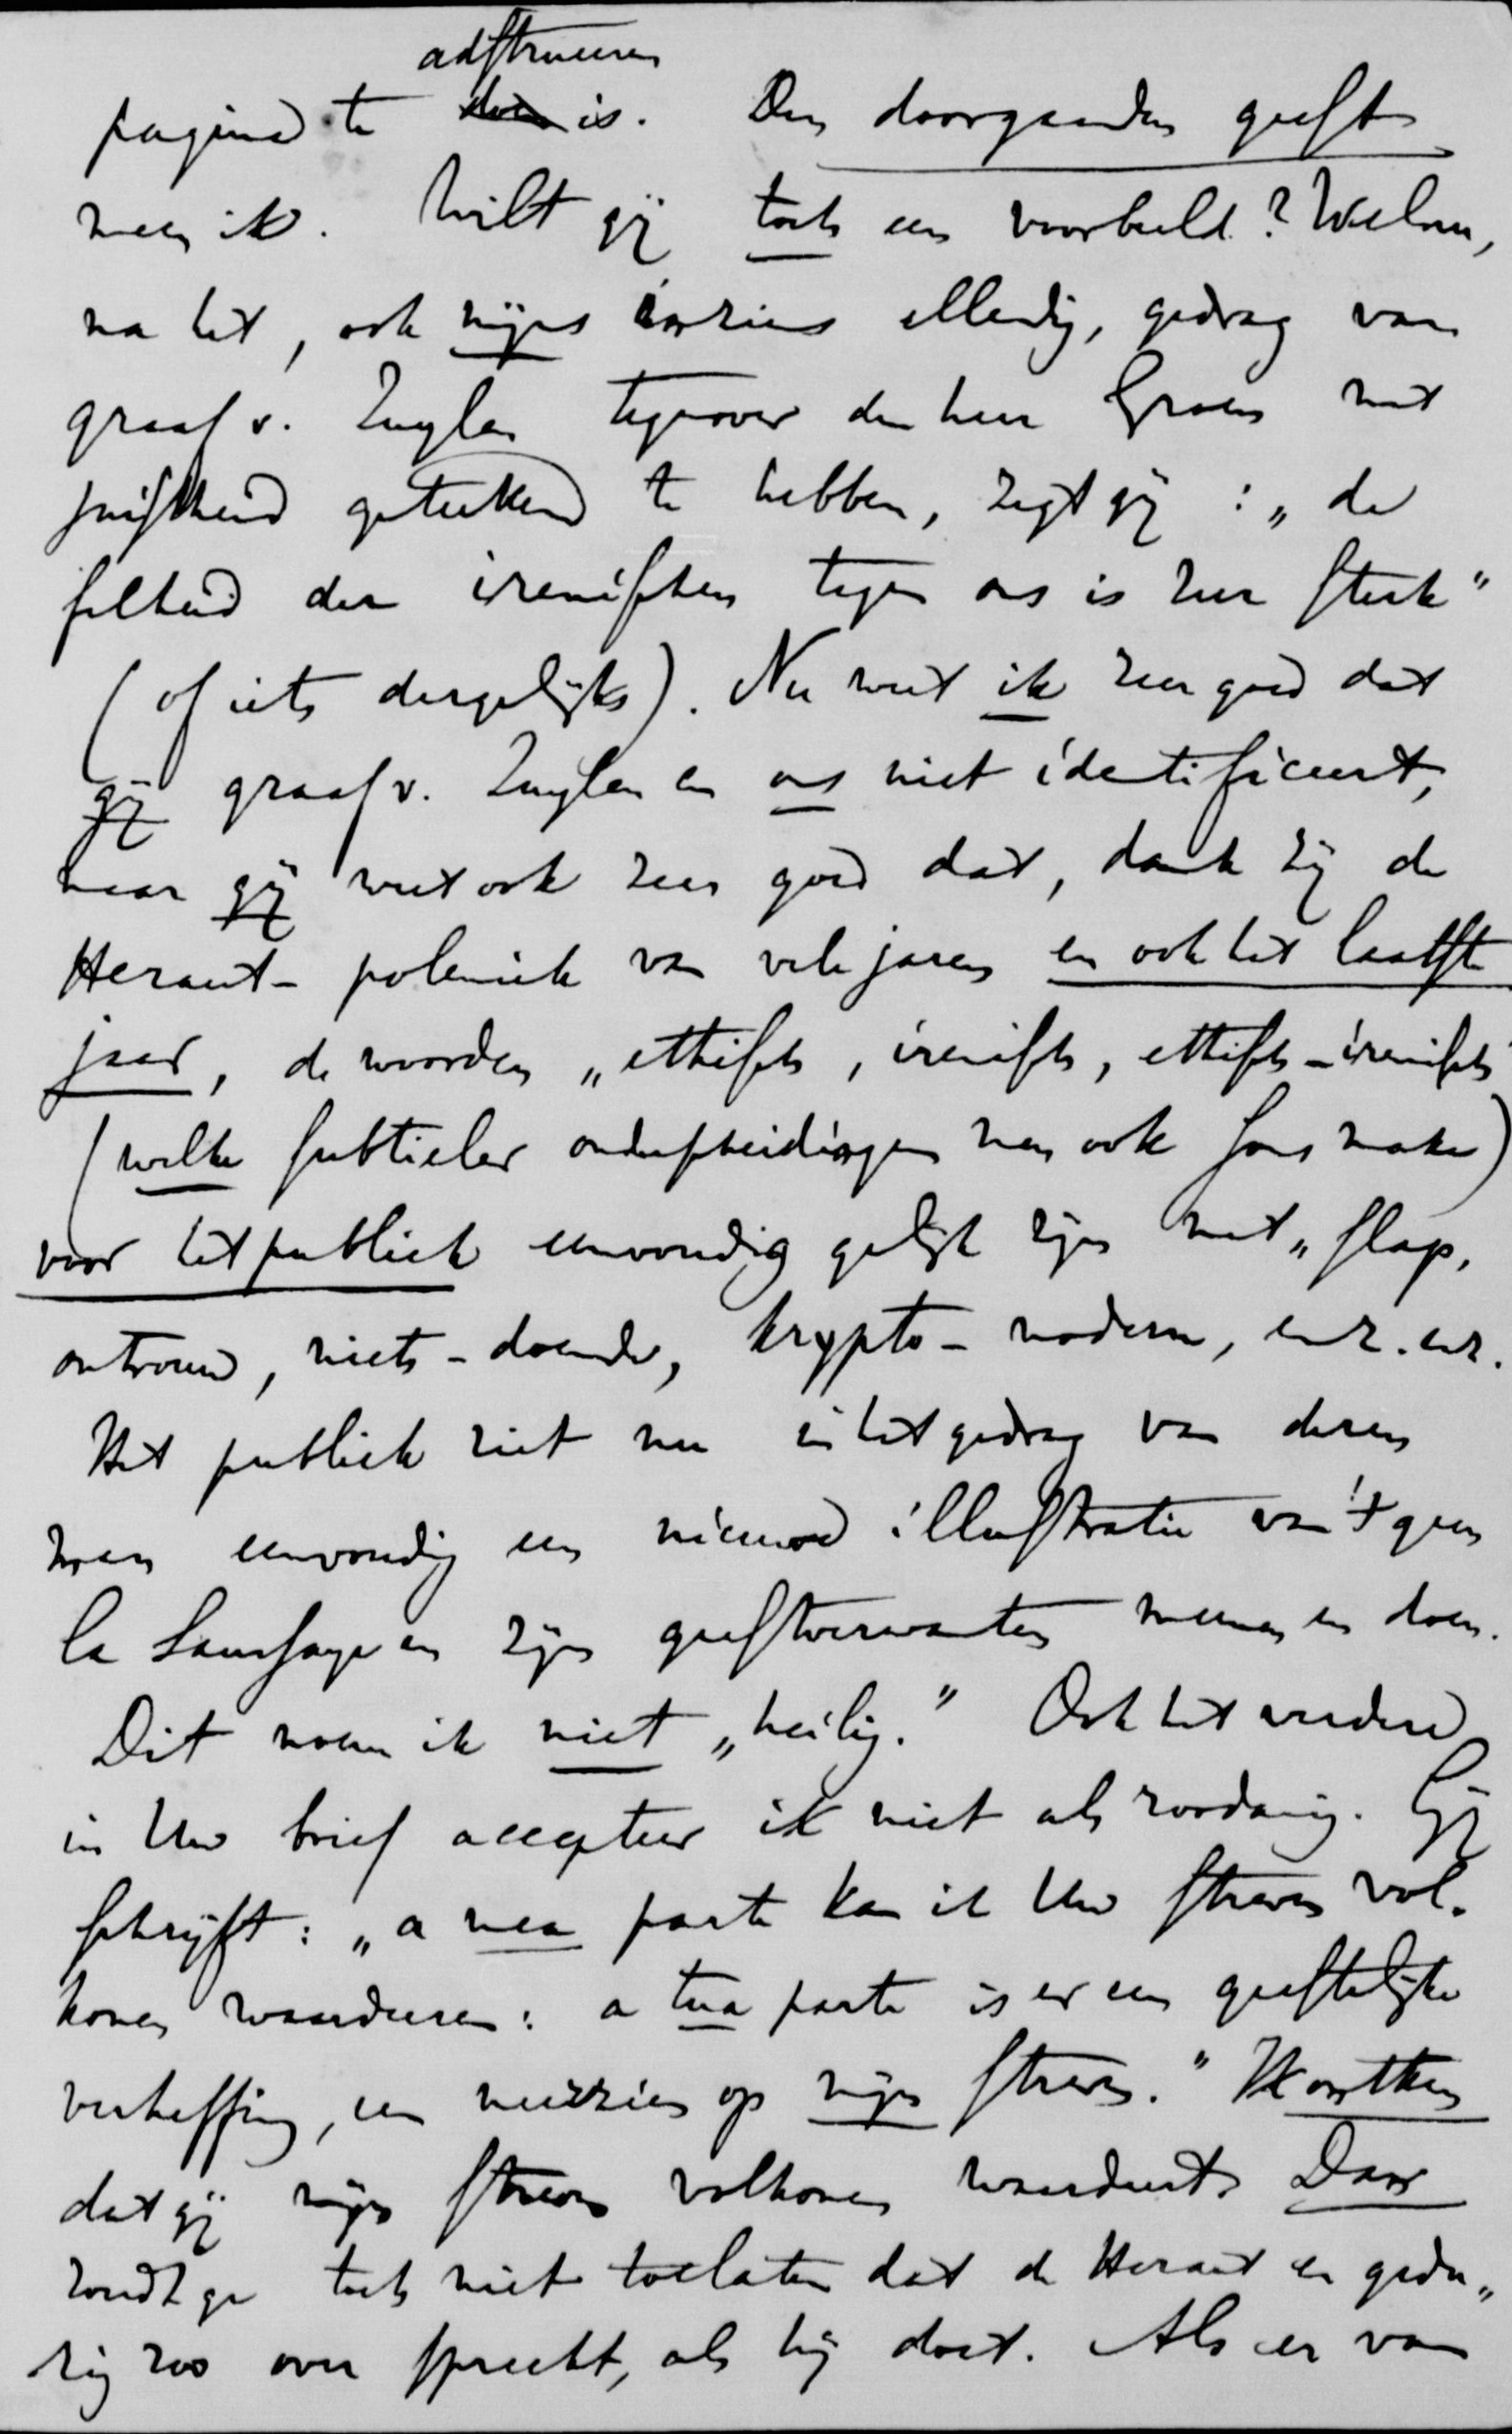 adstrueeren
pagina te doen is. Den doorgaanden geest
meen ik. Wilt gij toch een voorbeeld? Welnu,
na het, ook mijns inziens ellendig, gedrag van
graaf v. Zuylen tegenover den heer Groen met
juistheid geteekend te hebben, zegt gij: „de
felheid der irenischen tegen ons is zeer sterk"
(of iets dergelijks). Nu weet ik zeer goed dat
gij graaf v. Zuylen en ons niet identificeert,
maar gij weet ook zeer goed dat, dank zij de
Heraut-polemiek van vele jaren en ook het laatste
jaar, de woorden „ethisch, irenisch, ethisch-irenisch"
(welke subtieler onderscheidingen men ook soms make)
voor het publiek eenvoudig gelijk zijn met „slap,
ontrouw, niets-doende, krypto-modern, enz. enz.
Het publiek ziet nu in het gedrag van dezen
man eenvoudig een nieuwe illustratie van 't geen
la Saussaye en zijn geestverwanten meenen en doen.
Dit noem ik niet „heilig." Ook het verdere
in Uw brief accepteer ik niet als zoodanig. Gij
schrijft: „a mea parte kan ik Uw streven vol-
komen waardeeren: a tua parte is er een geestelijke
verheffing, een neerzien op mijn streven."
dat gij mijn streven volkomen waardeert. Dan
zoudt ge toch niet toelaten dat de Heraut er gedu„
rig zoo over spreekt, als hij doet. Als er van